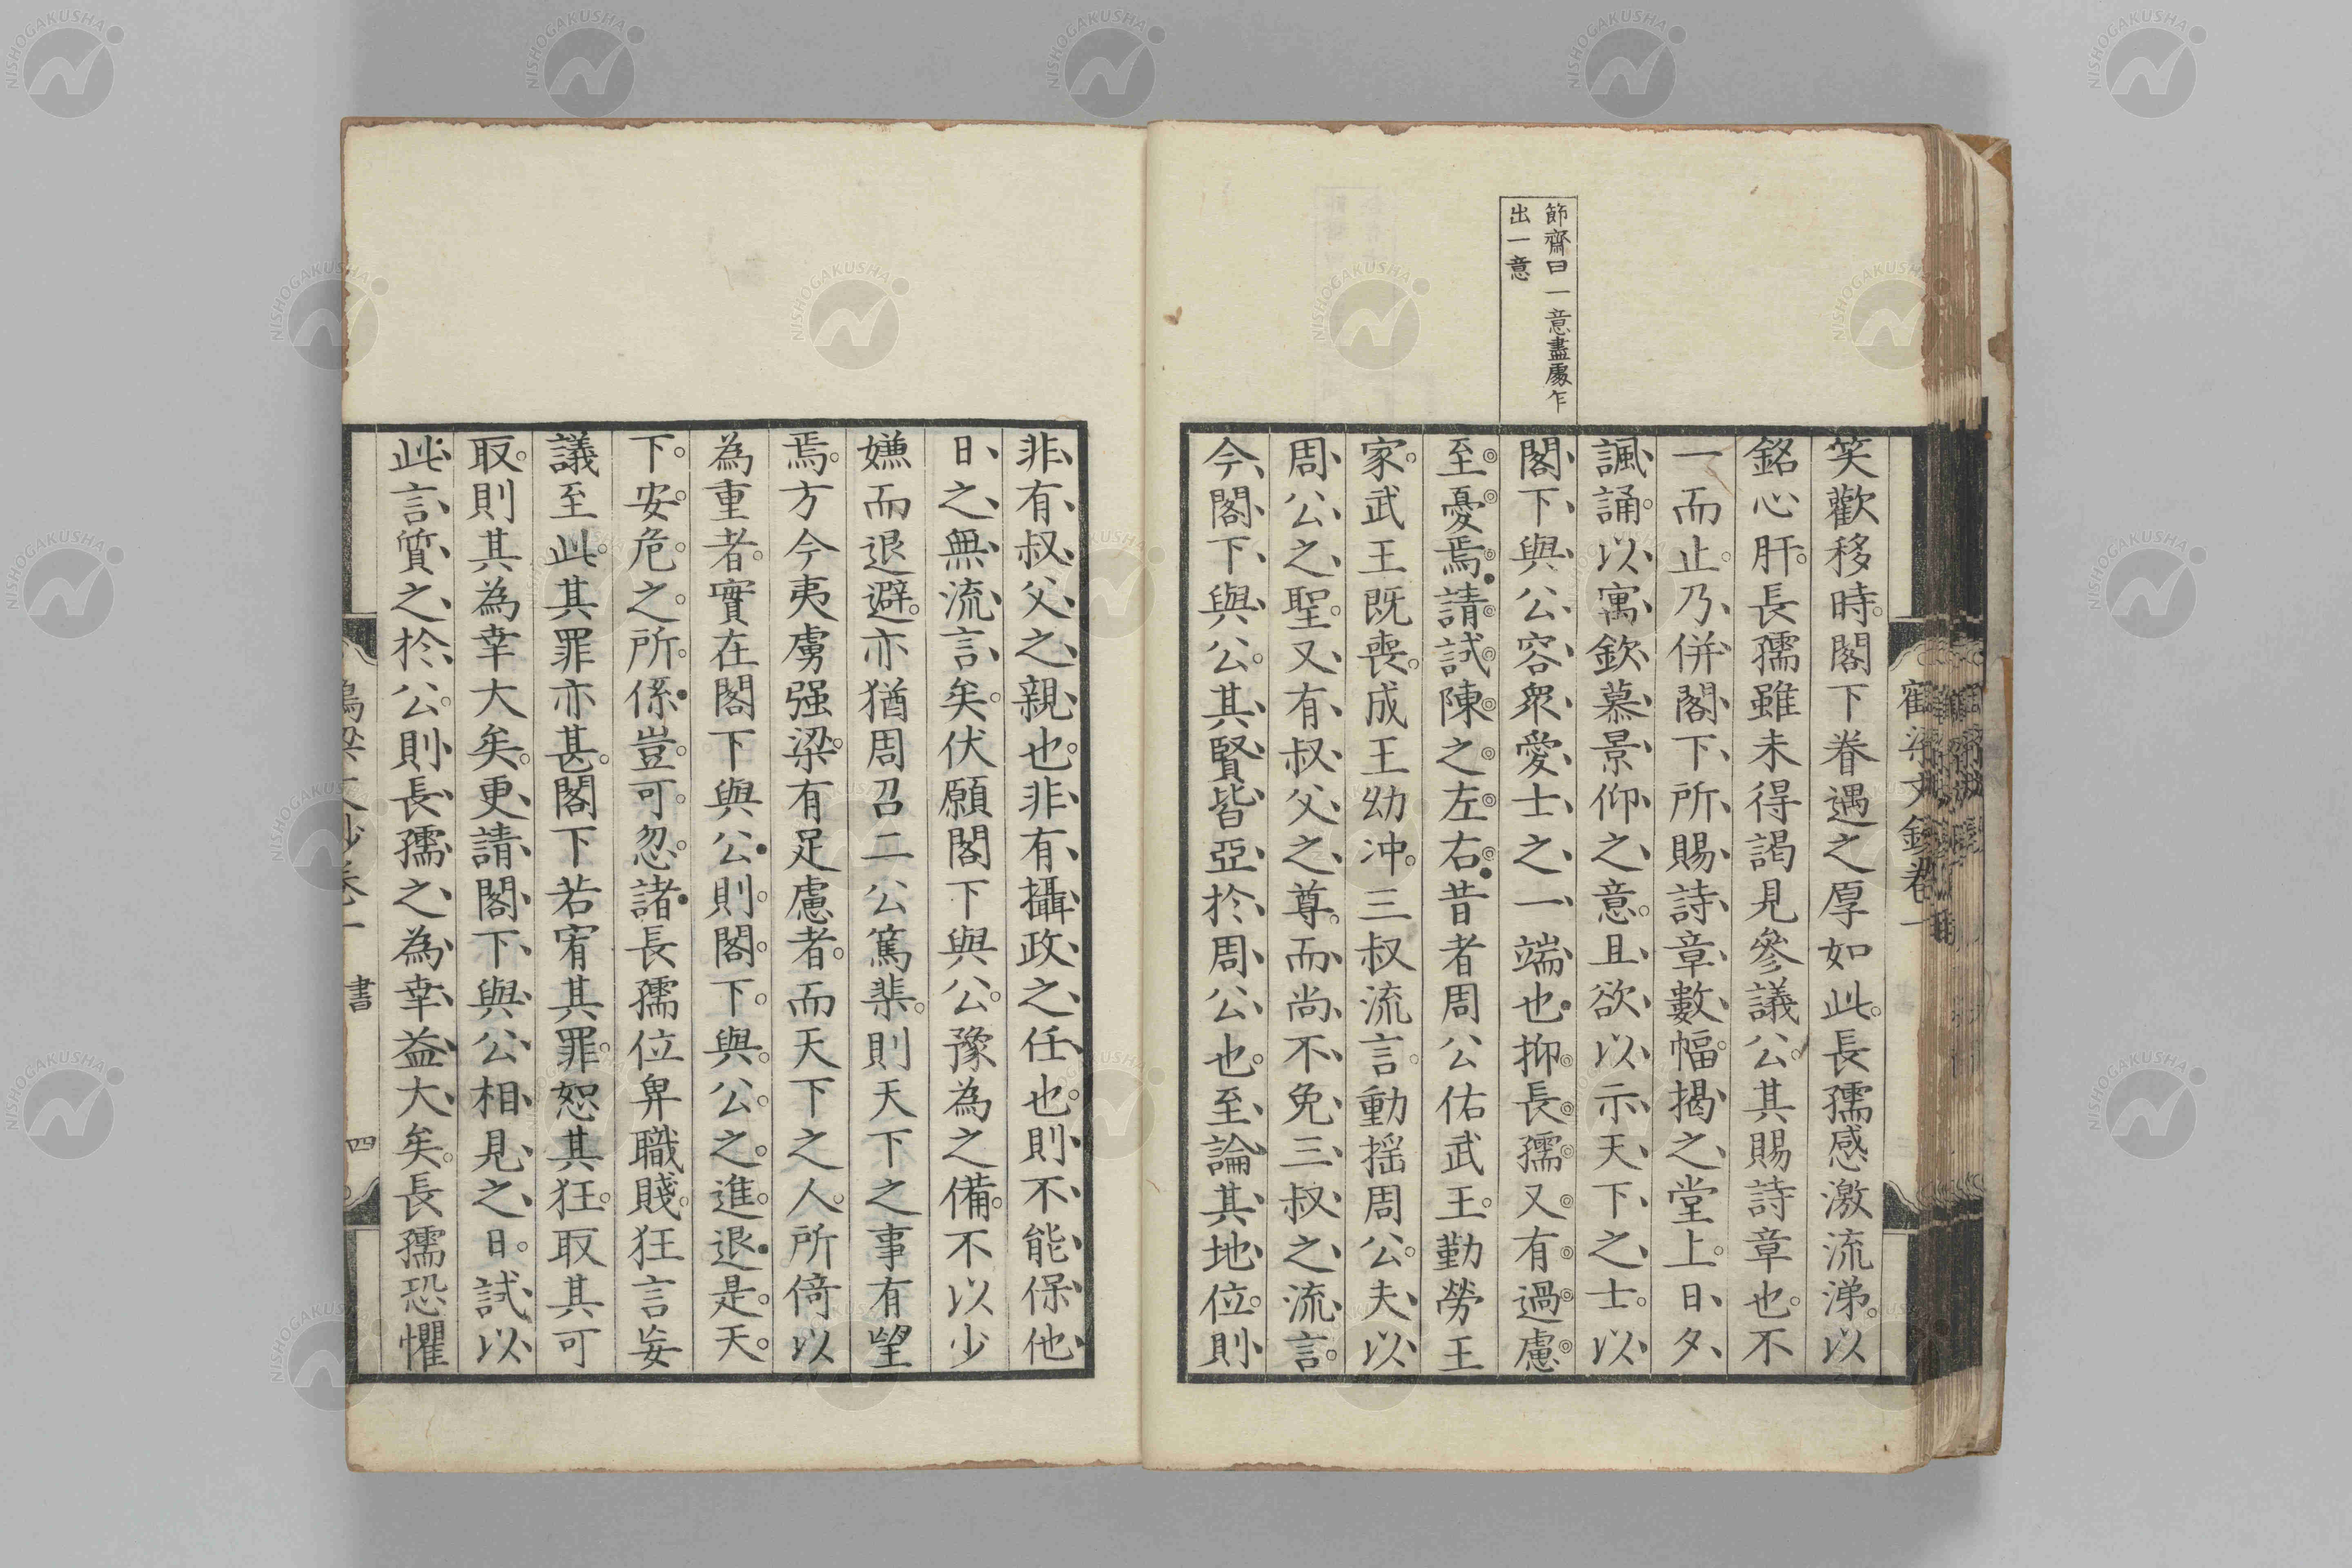 節齋曰一意盡處乍
出一意
笑歡移時閣下眷遇之厚如此長孺感激流涕以
銘心肝長孺雖未得謁見參議公其賜詩章也不
一而止乃併閣下所賜詩章數幅揭之堂上日夕
諷誦以寓欽慕景仰之意且欲以示天下之士以
閣下與公容衆愛士之一端也抑長孺又有過慮
至憂焉請試陳之左右昔者周公佑武王勤勞王
家武王既喪成王幼冲三叔流言動搖周公夫以
周公之聖又有叔父之尊而尚不免三叔之流言
今閣下與公其賢皆亞於周公也至論其地位則
非有叔父之親也非有攝政之任也則不能保他
日之無流言矣伏願閣下與公豫為之備不以少
嫌而退避亦猶周召二公篤棐則天下之事有望
焉方今夷虜强梁有足慮者而天下之人所倚以
為重者實在閣下與公則閣下與公之進退是天
下安危之所係豈可忽諸長孺位卑職賤狂言妄
議至此其罪亦甚閣下若宥其罪恕其狂取其可
取則其為幸大矣更請閣下與公相見之日試以
此言質之於公則長孺之為幸益大矣長孺恐懼
書
四
NISHOGAKUSHA